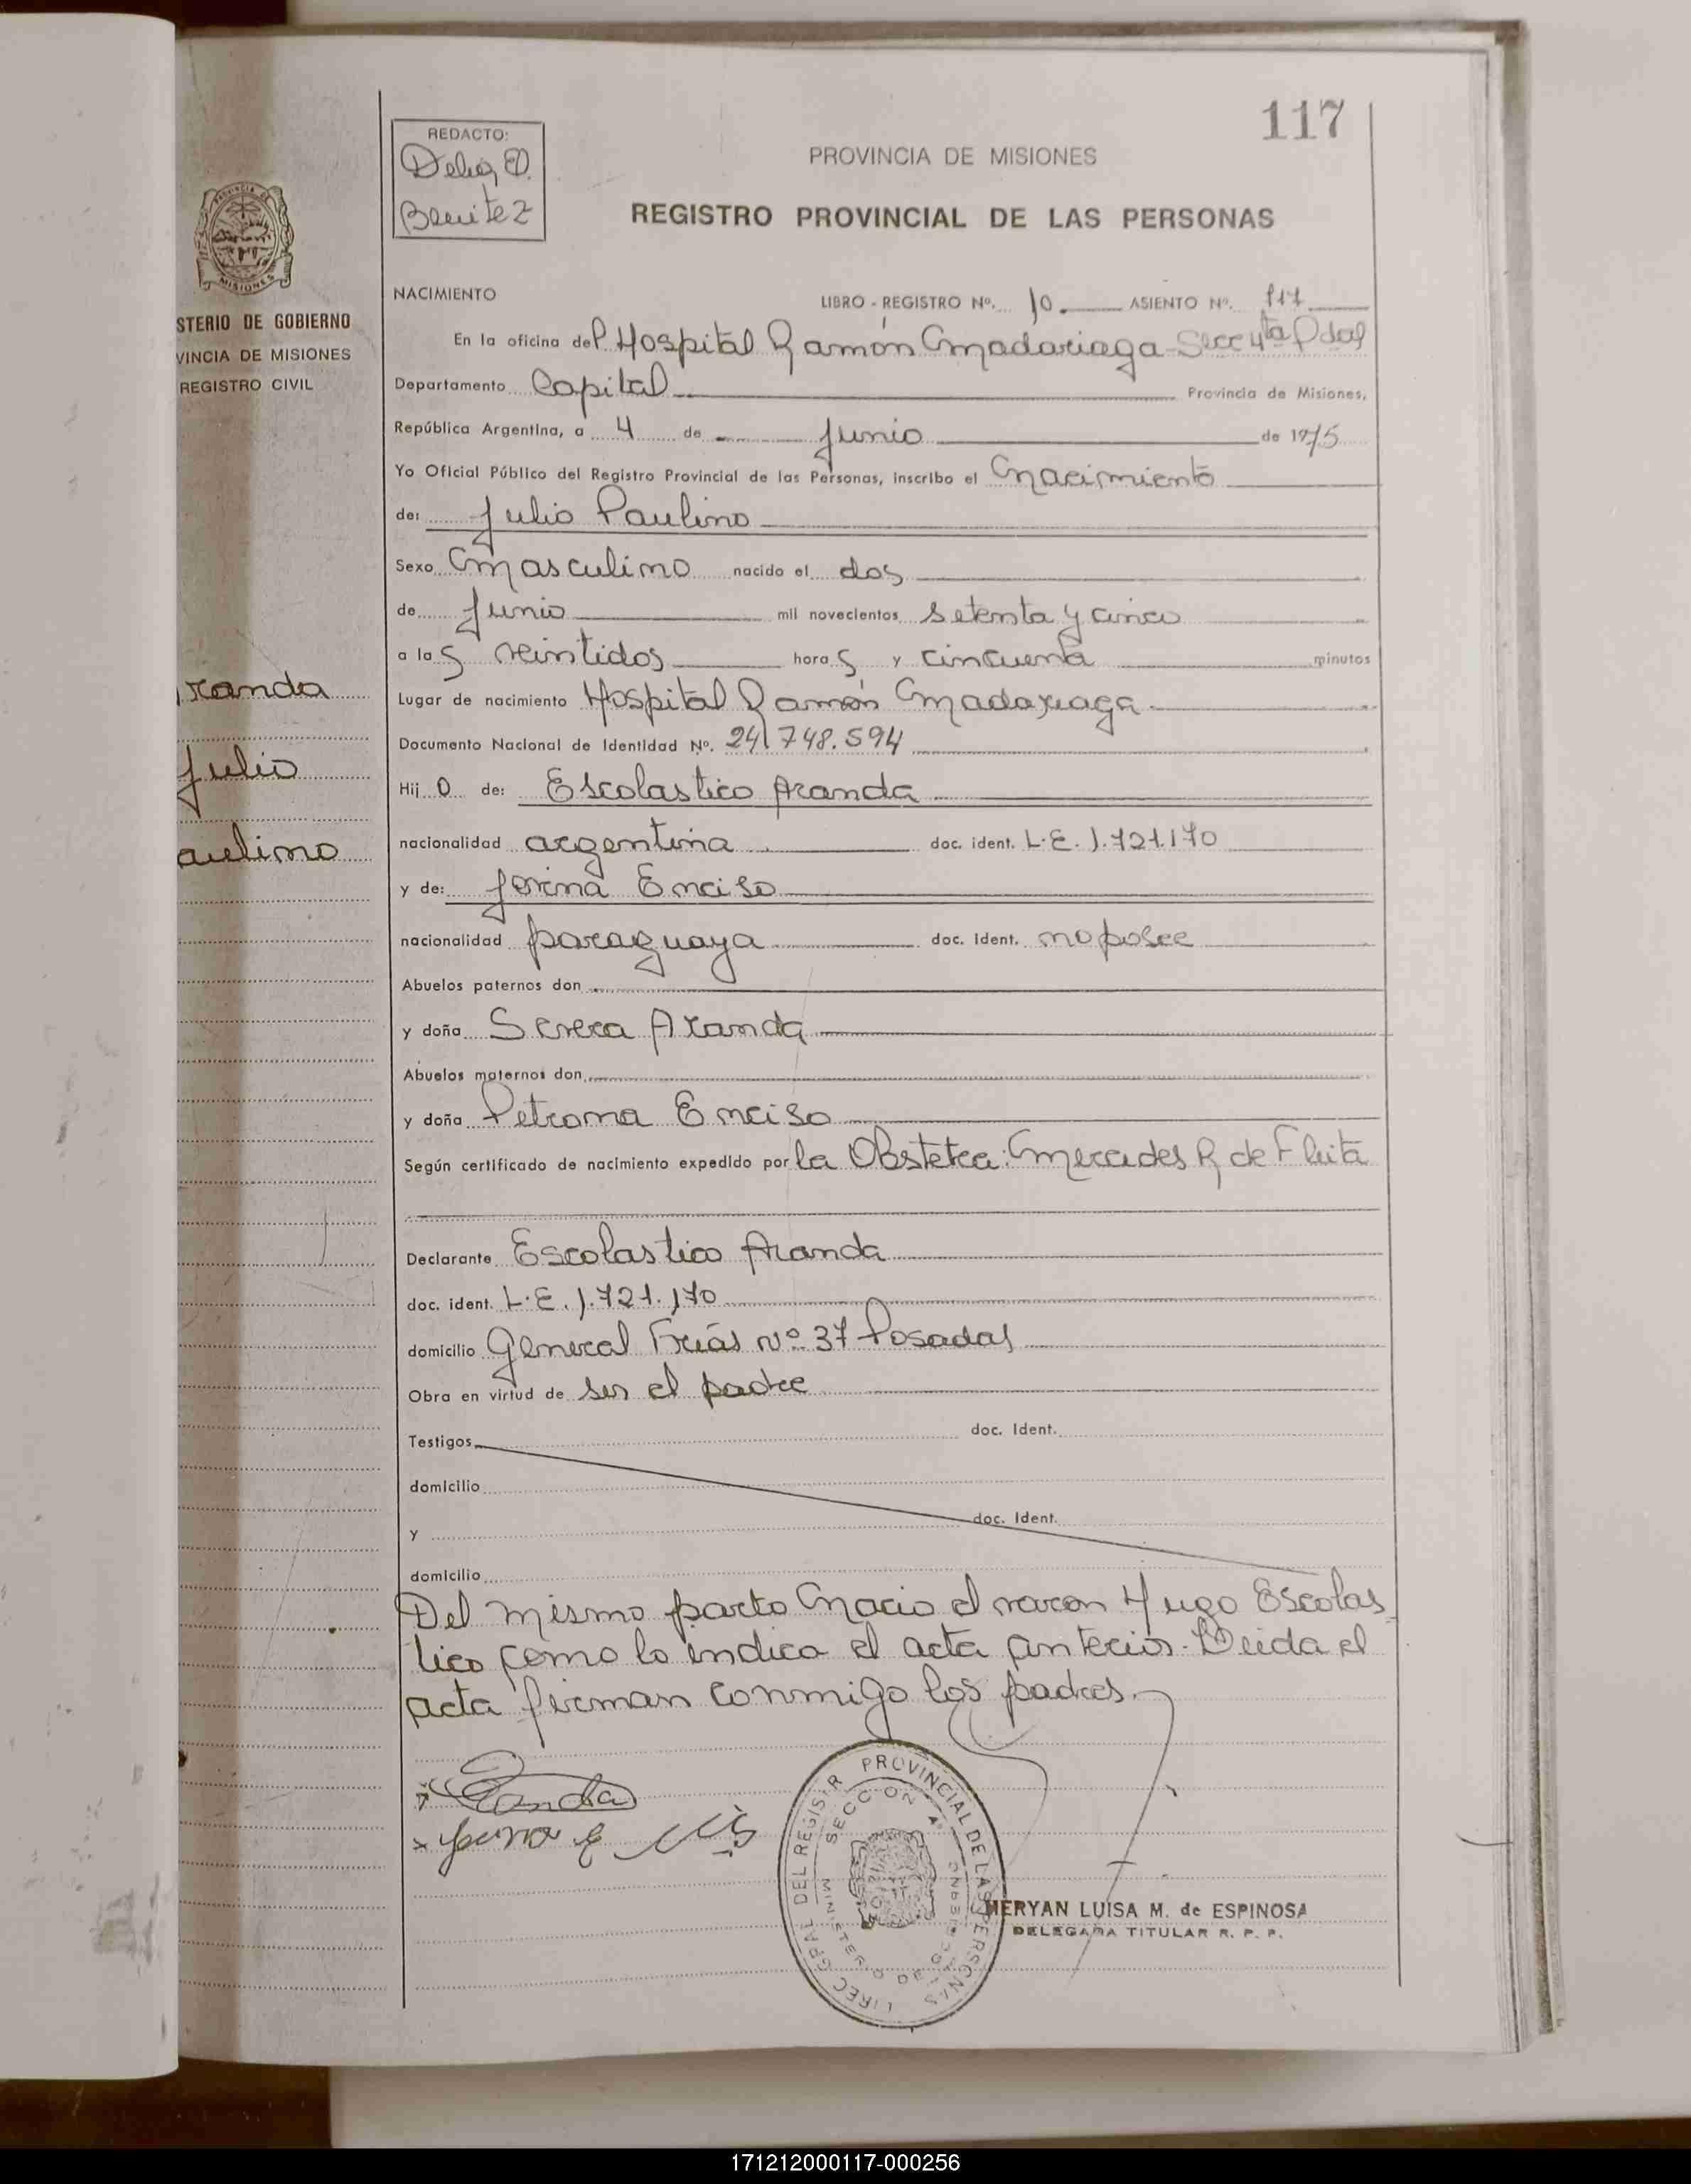 117
REDACTO:
Delia E.
Benitez
PROVINCIA DE MISIONES
REGISTRO PROVINCIAL DE LAS PERSONAS
MISIONES
STERIO DE GOBIERNO
VINCIA DE MISIONES
REGISTRO CIVIL
randa
Julio
aulino
NACIMIENTO LIBRO - REGISTRO Nº. 10 ASIENTO Nº. 117
En la oficina del Hospital Ramón Madariaga Secc 4ta Pdas
Departamento Capital Provincia de Misiones,
República Argentina, a 4 de Junio de 1975
Yo Oficial Público del Registro Provincial de las Personas, inscribo el Nacimiento
de: Julio Paulino
Sexo Masculino nacido el dos
de Junio mil novecientos setenta y cinco
a las veintidos horas y cincuenta minutos
Lugar de nacimiento Hospital Ramón Madariaga
Documento Nacional de Identidad Nº. 24.748.594
Hijo de: Escolastico Aranda
nacionalidad argentina doc. ident. L.E. 1.721.170
y de: Jovina Enciso
nacionalidad paraguaya doc. ident. no posee
Abuelos paternos don
y doña Severa Aranda
Abuelos maternos don
y doña Petrona Enciso
Según certificado de nacimiento expedido por la Obstetra: Mercedes R de Fleita
Declarante Escolastico Aranda
doc. ident. L.E. 1.721.170
domicilio General Frías Nº 37 Posadas
Obra en virtud de ser el padre
Testigos doc. Ident.
domicilio
y doc. Ident.
domicilio
Del mismo parto Nacio el varon Hugo Escolas
tico como lo indica el acta anterior. Leida el
acta firman conmigo los padres.
MERYAN LUISA M. de ESPINOSA
DELEGADA TITULAR R. P. P.
171212000117-000256